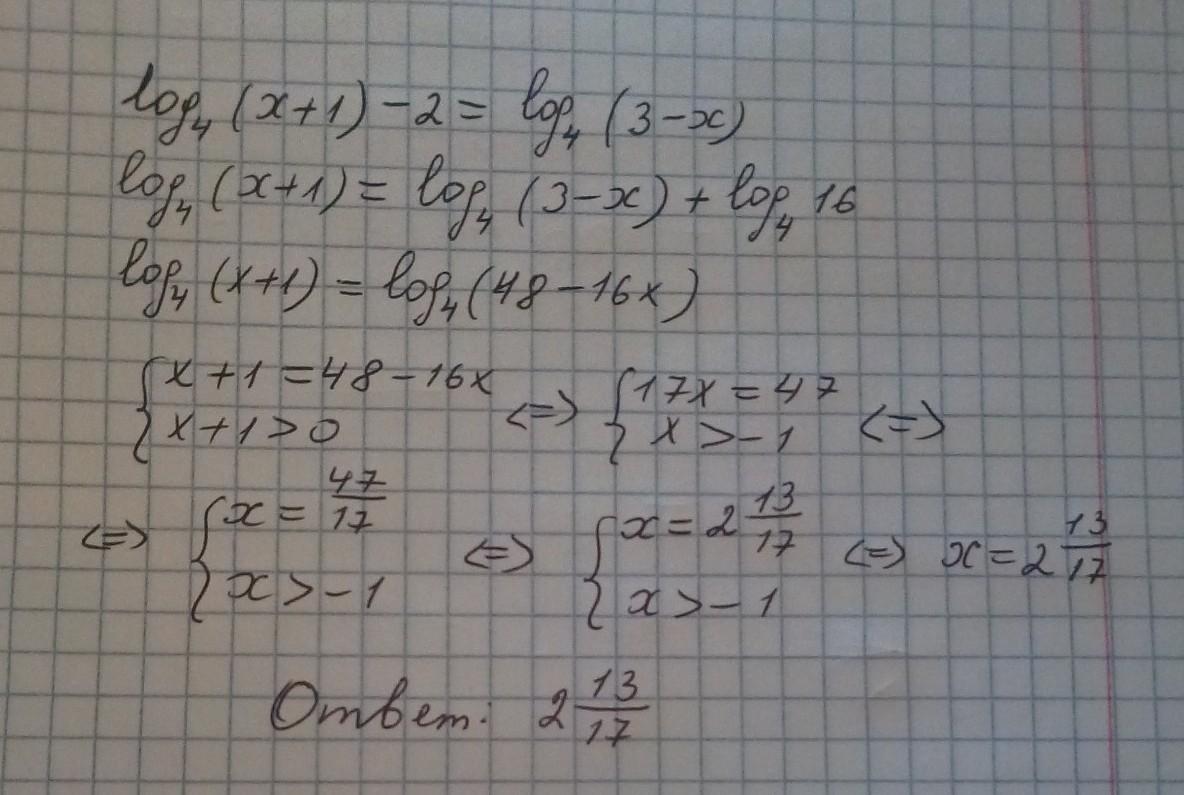 log₄ (x+1) − 2 = log₄ (3−x)
log₄ (x+1) = log₄ (3−x) + log₄ 16
log₄ (x+1) = log₄ (48−16x)
{ x+1 = 48−16x ; x+1 > 0 <=> { 17x = 47 ; x > −1 <=>
<=> { x = 47/17 ; x > −1 <=> { x = 2 13/17 ; x > −1 <=> x = 2 13/17
Ответ: 2 13/17